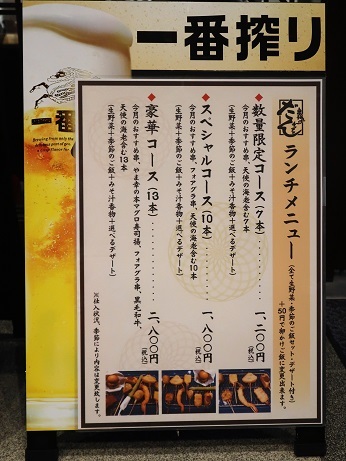 一番搾り
ランチメニュー
(全て生野菜・季節のご飯セット・デザート付き)
+50円で卵かけご飯に変更出来ます。
◆数量限定コース(7本)・・・・・・・・一、二〇〇円(税込)
今月のおすすめ串、天使の海老含む7本
(生野菜+季節のご飯+みそ汁香物+選べるデザート)
◆スペシャルコース(10本)・・・・・・・一、八〇〇円(税込)
今月のおすすめ串、フォアグラ串、天使の海老含む10本
(生野菜+季節のご飯+みそ汁香物+選べるデザート)
◆豪華コース(13本)・・・・・・・・二、八〇〇円(税込)
今月のおすすめ串、やま幸の本マグロ寿司揚、フォアグラ串、黒毛和牛、
天使の海老含む13本
(生野菜+季節のご飯+みそ汁香物+選べるデザート)
※仕入状況、季節により内容は変更致します。